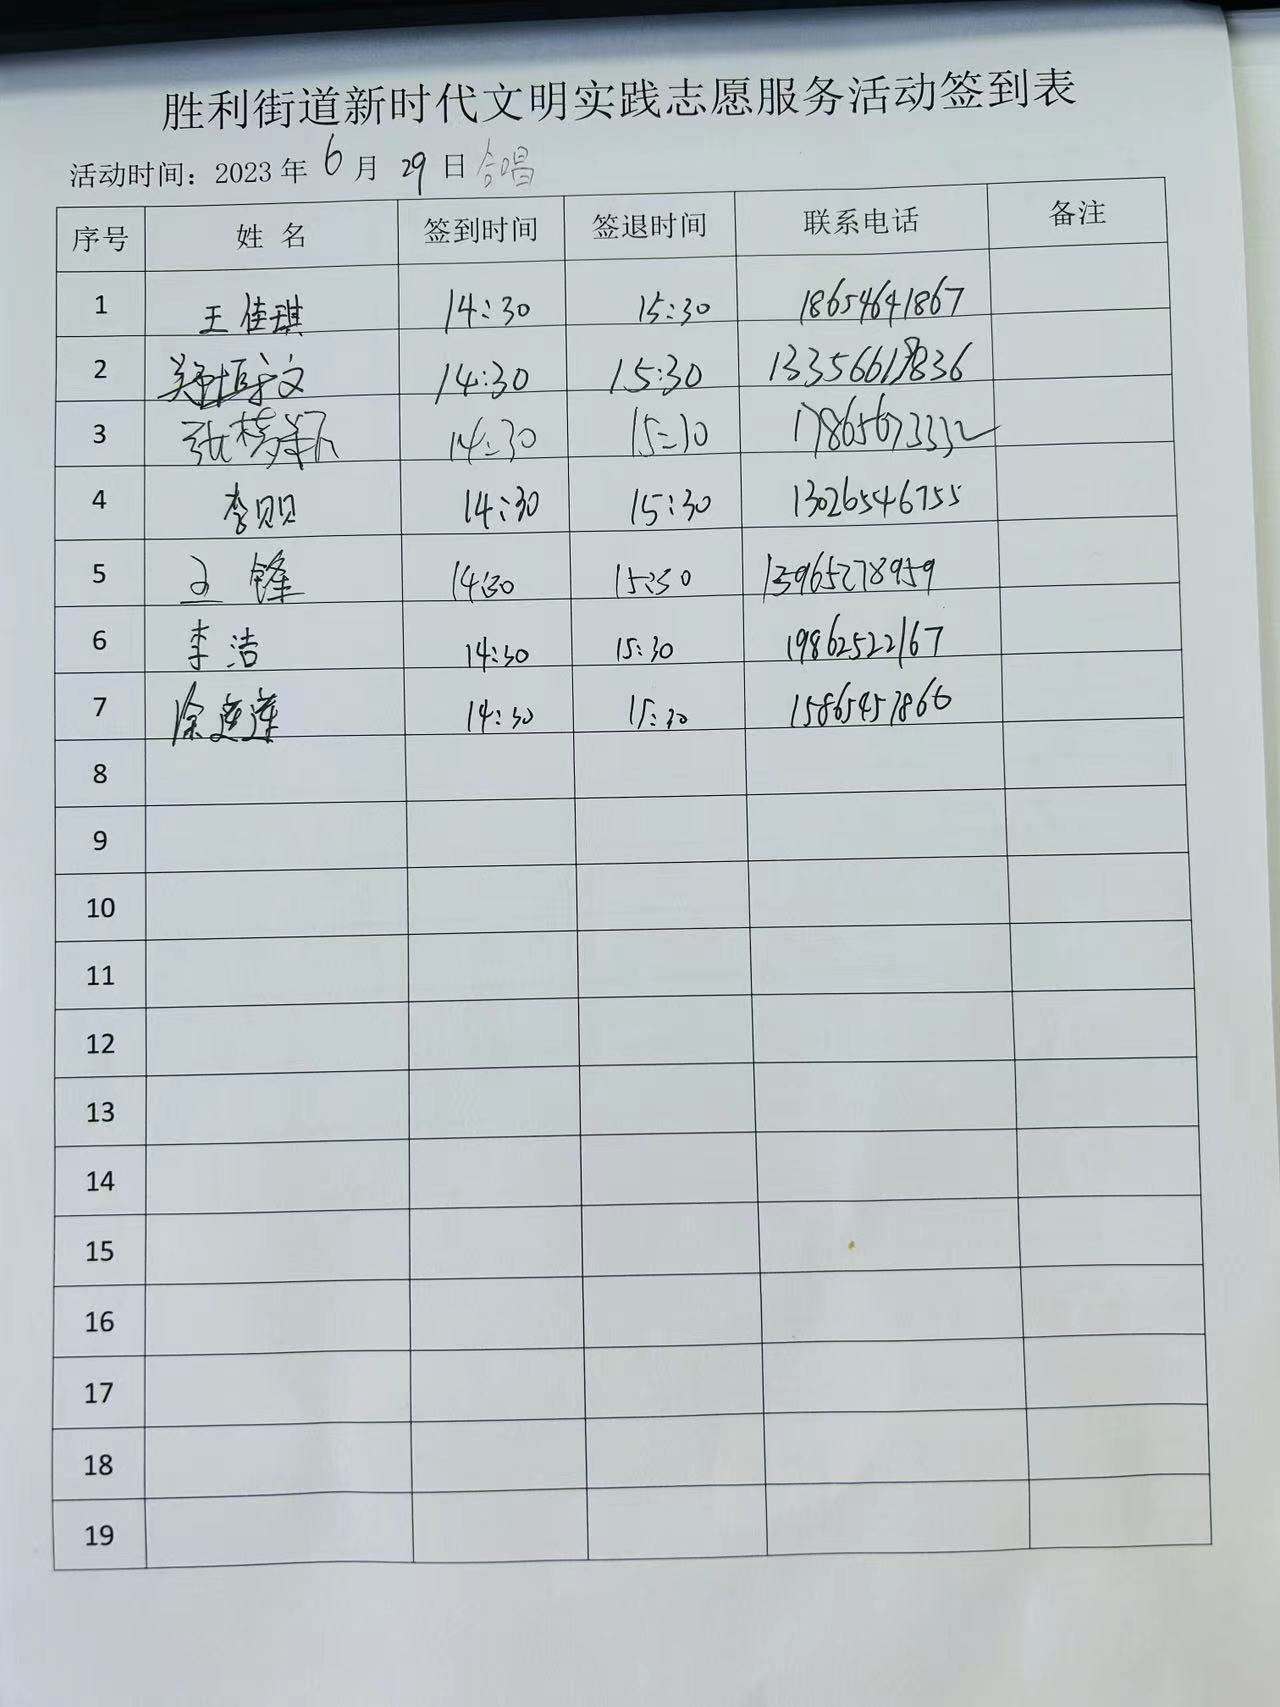 胜利街道新时代文明实践志愿服务活动签到表
活动时间：2023年 6 月 29 日 合唱
序号 姓 名 签到时间 签退时间 联系电话 备注
1 王佳琪 14:30 15:30 18654641867
2 14:30 15:30
3 14:30 15:30 17865673332
4 李贝贝 14:30 15:30 13026546755
5 王锋 14:30 15:30 13965278959
6 李洁 14:30 15:30 19862522167
7 徐莲莲 14:30 15:30 15865457866
8
9
10
11
12
13
14
15
16
17
18
19